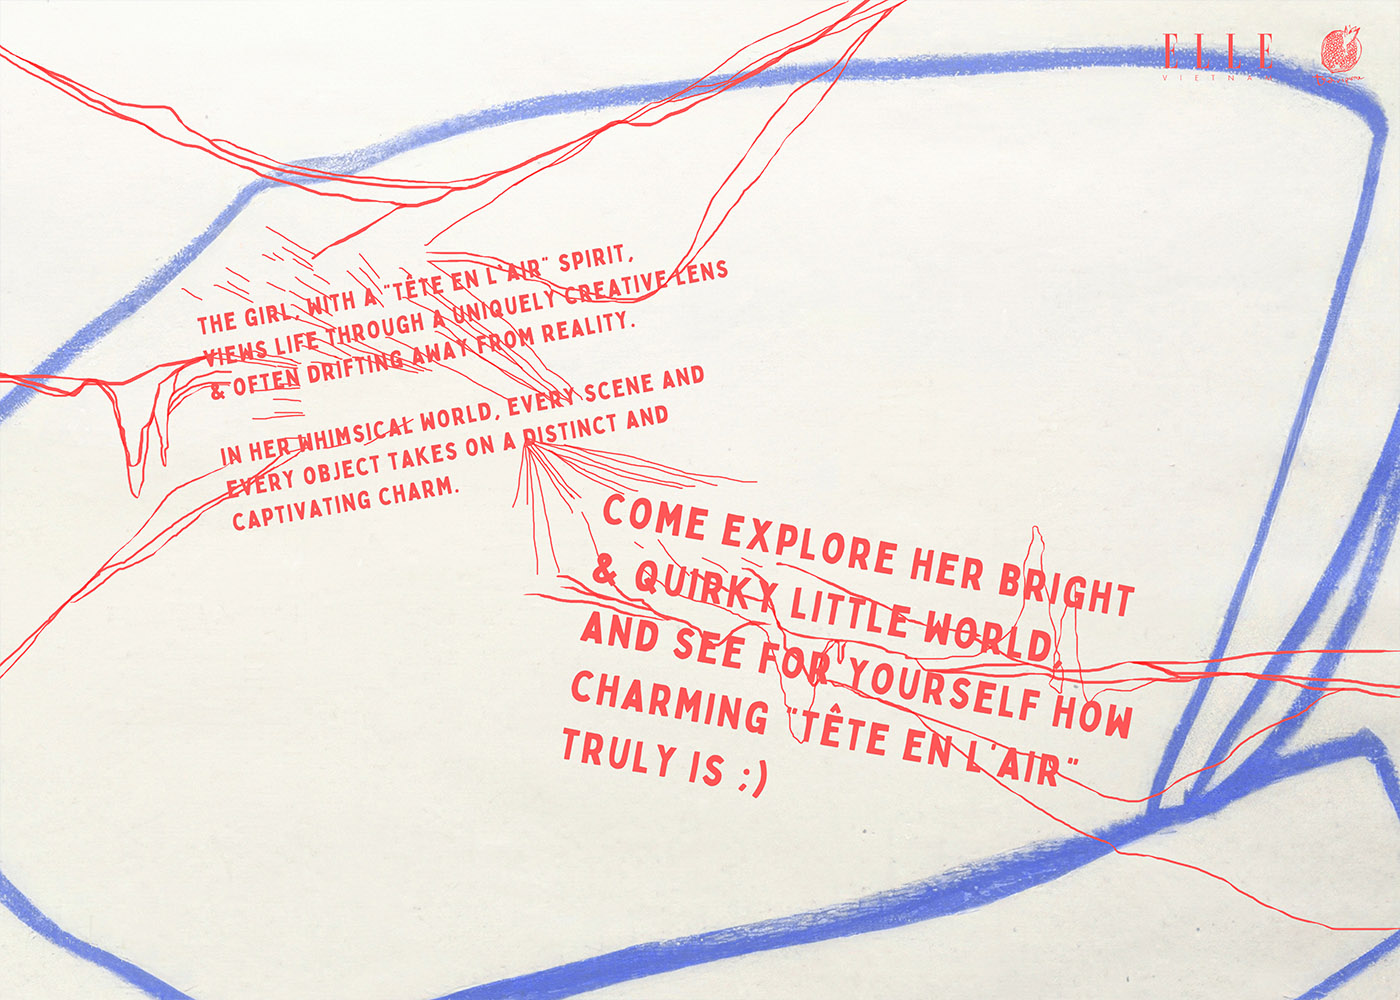 ELLE
VIETNAM
THE GIRL, WITH A "TÊTE EN L'AIR" SPIRIT,
VIEWS LIFE THROUGH A UNIQUELY CREATIVE LENS
& OFTEN DRIFTING AWAY FROM REALITY.
IN HER WHIMSICAL WORLD, EVERY SCENE AND
EVERY OBJECT TAKES ON A DISTINCT AND
CAPTIVATING CHARM.
COME EXPLORE HER BRIGHT
& QUIRKY LITTLE WORLD,
AND SEE FOR YOURSELF HOW
CHARMING "TÊTE EN L'AIR"
TRULY IS ;)